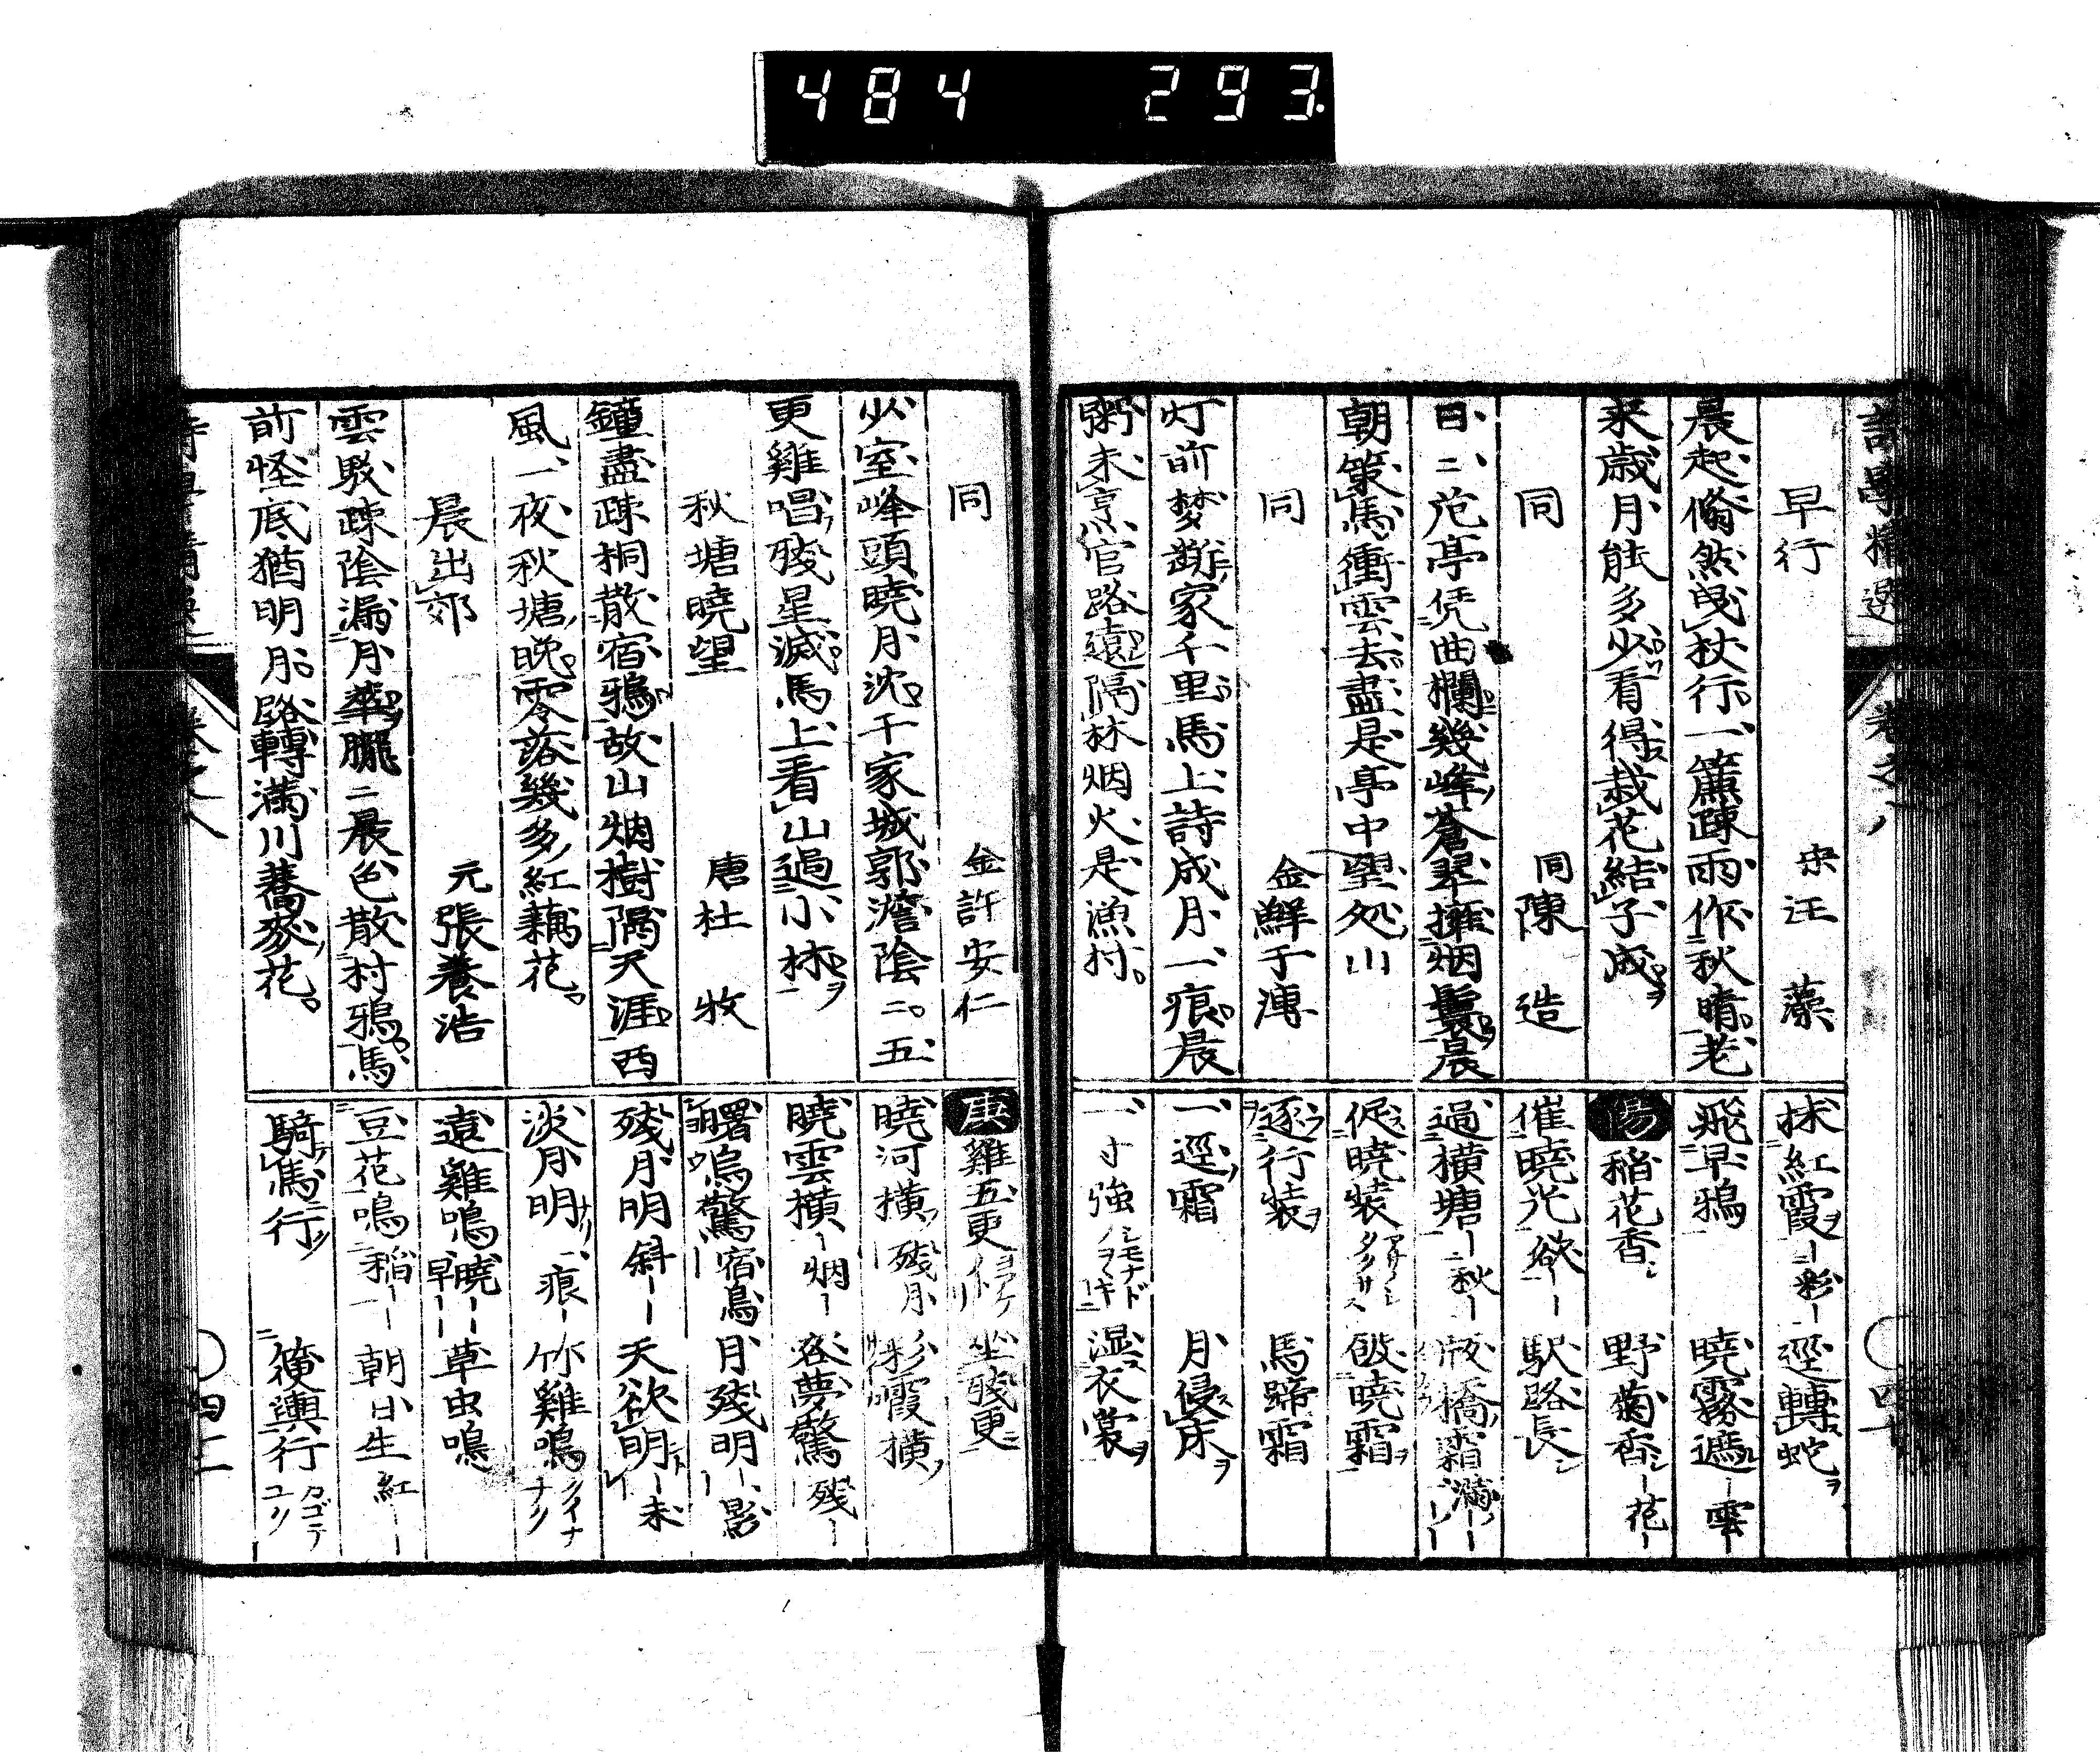 484 293
早行 宋 汪藻
晨起翛然曳杖行一簾疎雨作秋晴老
来歳月能多少看得栽花結子成
同 同 陳造
日二范亭凭曲欄幾峰蒼翠擁烟鬟晨
朝策馬衝雲去盡是亭中望処山
同 金 鮮于溥
灯前梦断家千里馬上詩成月一痕晨
粥未烹官路遠隔林烟火是漁村
抹紅霞ヲ 彩 逕轉蛇ヲ
飛早鴉 暁霧遮 雲
陽 稲花香シ 野菊香シ 花
催暁光 欲 駅路長シ
過横塘 秋 板橋霜満
促暁装 殷暁霜ヲ
逐行装ヲ 馬蹄霜
一逕霜 月侵床ヲ
一寸強 湿衣裳ヲ
同 金 許安仁
少室峰頭暁月沈千家城郭澹陰二五
更雞唱残星滅馬上看山過小林
秋塘暁望 唐 杜牧
鐘盡疎桐散宿鴉故山烟樹隔天涯西
風一夜秋塘晩零落幾多紅藕花
晨出郊 元 張養浩
雲駁疎陰漏月華朧二晨色散村鴉馬
前怪底猶明月路轉満川蕎麥花
庚 雞五更 坐残更
暁河横 残月 彩霞横
暁雲横 烟 客夢驚 残
曙烏驚 宿鳥 月残明 影
残月明 斜 天欲明 未
淡月明 一痕 竹雞鳴 クイナナリ
遠雞鳴 暁 早 草虫鳴
豆花鳴 稲 朝日生 紅
騎馬行 復輿行 カゴテユリ